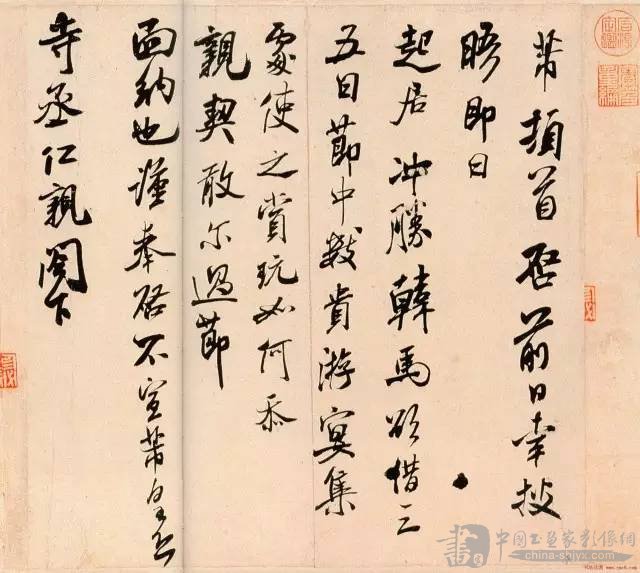 芾頓首啓前日幸披
晤即日
起居冲勝韓馬欲借三
五日節中數貴游宴集
處使之賞玩如何忝
親契敢尔過節
面納也謹奉啓不宣芾皇恐
寺丞仁親閣下
china-shjyx.com